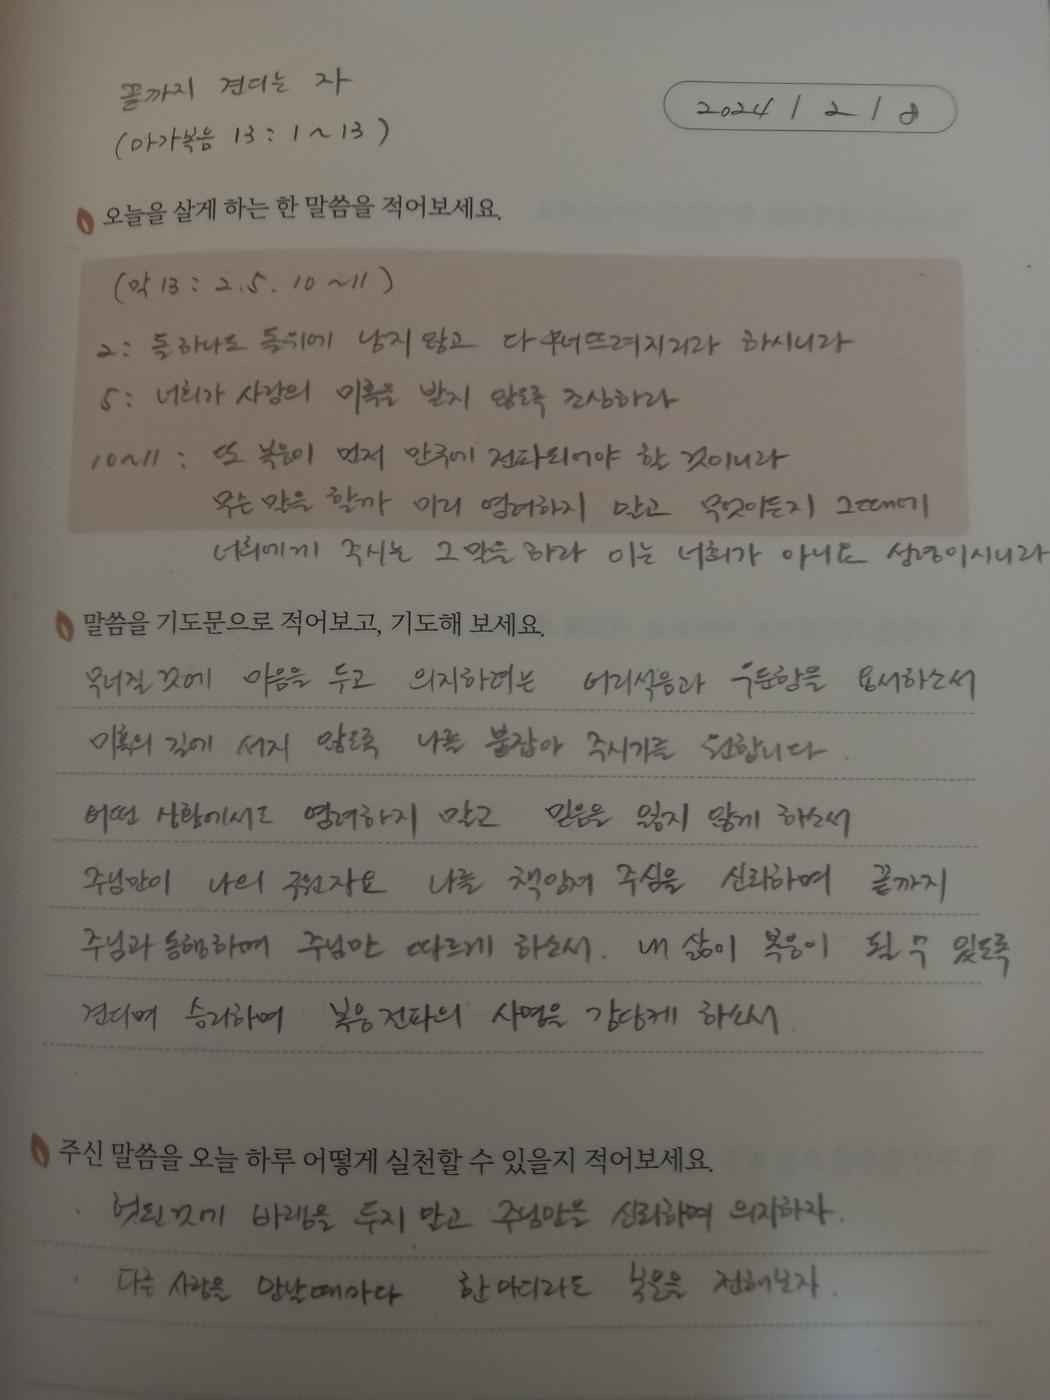 끝까지 견디는 자
2024 / 2 / 8
(마가복음 13 : 1 ~ 13)
오늘을 살게 하는 한 말씀을 적어보세요.
(막 13 : 2. 5. 10 ~ 11)
2 : 돌 하나도 돌위에 남지 않고 다 무너뜨려지리라 하시니라
5 : 너희가 사람의 미혹을 받지 않도록 조심하라
10~11 : 또 복음이 먼저 만국에 전파되어야 할 것이니라
무슨 말을 할까 미리 염려하지 말고 무엇이든지 그때에
너희에게 주시는 그 말을 하라 이는 너희가 아니요 성령이시니라
말씀을 기도문으로 적어보고, 기도해 보세요.
무너질 것에 마음을 두고 의지하려는 어리석음과 우둔함을 용서하소서
미혹의 길에 서지 않도록 나를 붙잡아 주시기를 원합니다.
어떤 상황에서도 염려하지 말고 믿음을 잃지 않게 하소서
주님만이 나의 구원자요 나를 책임져 주심을 신뢰하며 끝까지
주님과 동행하며 주님만 따르게 하소서. 내 삶이 복음이 될 수 있도록
견디며 승리하며 복음 전파의 사명을 감당케 하소서
주신 말씀을 오늘 하루 어떻게 실천할 수 있을지 적어보세요.
· 헛된것에 바램을 두지 말고 주님만을 신뢰하며 의지하자.
· 다른 사람을 만날때마다 한마디라도 복음을 전해보자.